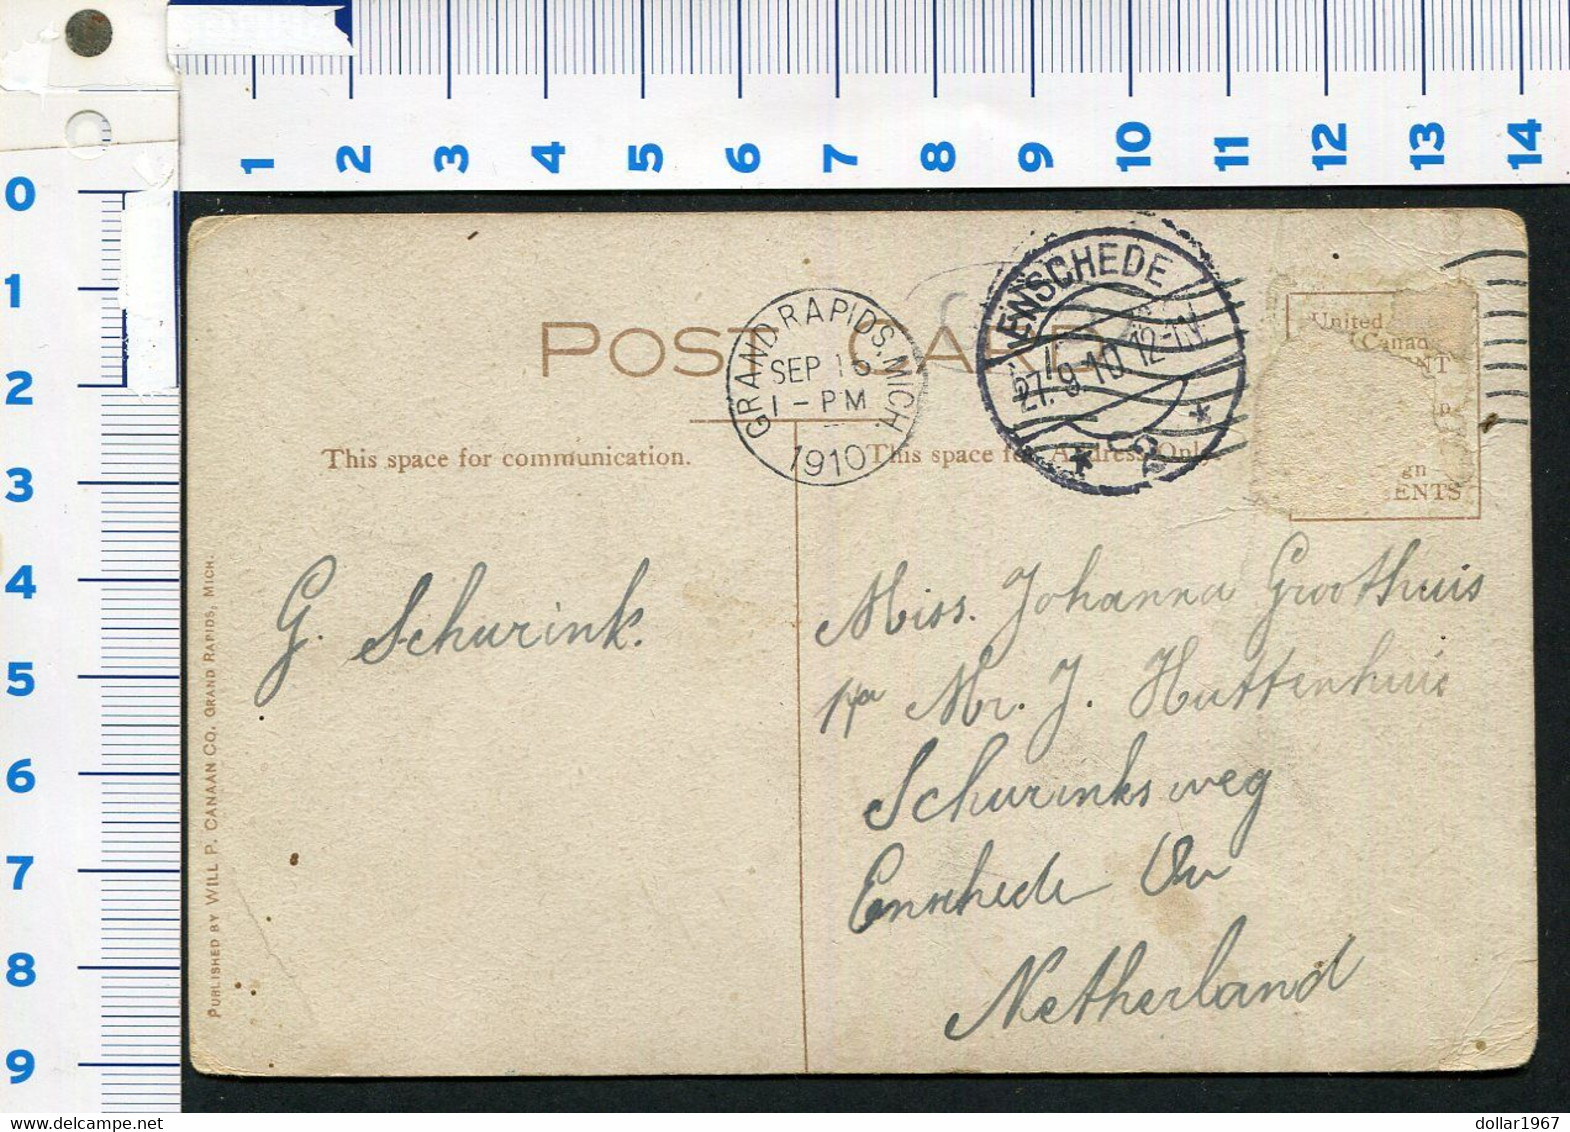 1 2 3 4 5 6 7 8 9 10 11 12 13 14
0
1
2
3
4
5
6
7
8
9
POST CARD
GRAND RAPIDS, MICH.
SEP 16
1-PM
1910
ENSCHEDE
27.9.10 12-1N
* 2 *
United
Canad
NT
gn
ENTS
This space for communication.
This space for Address Only.
G. Schurink.
Miss. Johanna Groothuis
Mr. J. Huttenhuis
Schurinksweg
Enschede Ov
Netherland
PUBLISHED BY WILL P. CANAAN CO. GRAND RAPIDS, MICH.
dollar1967